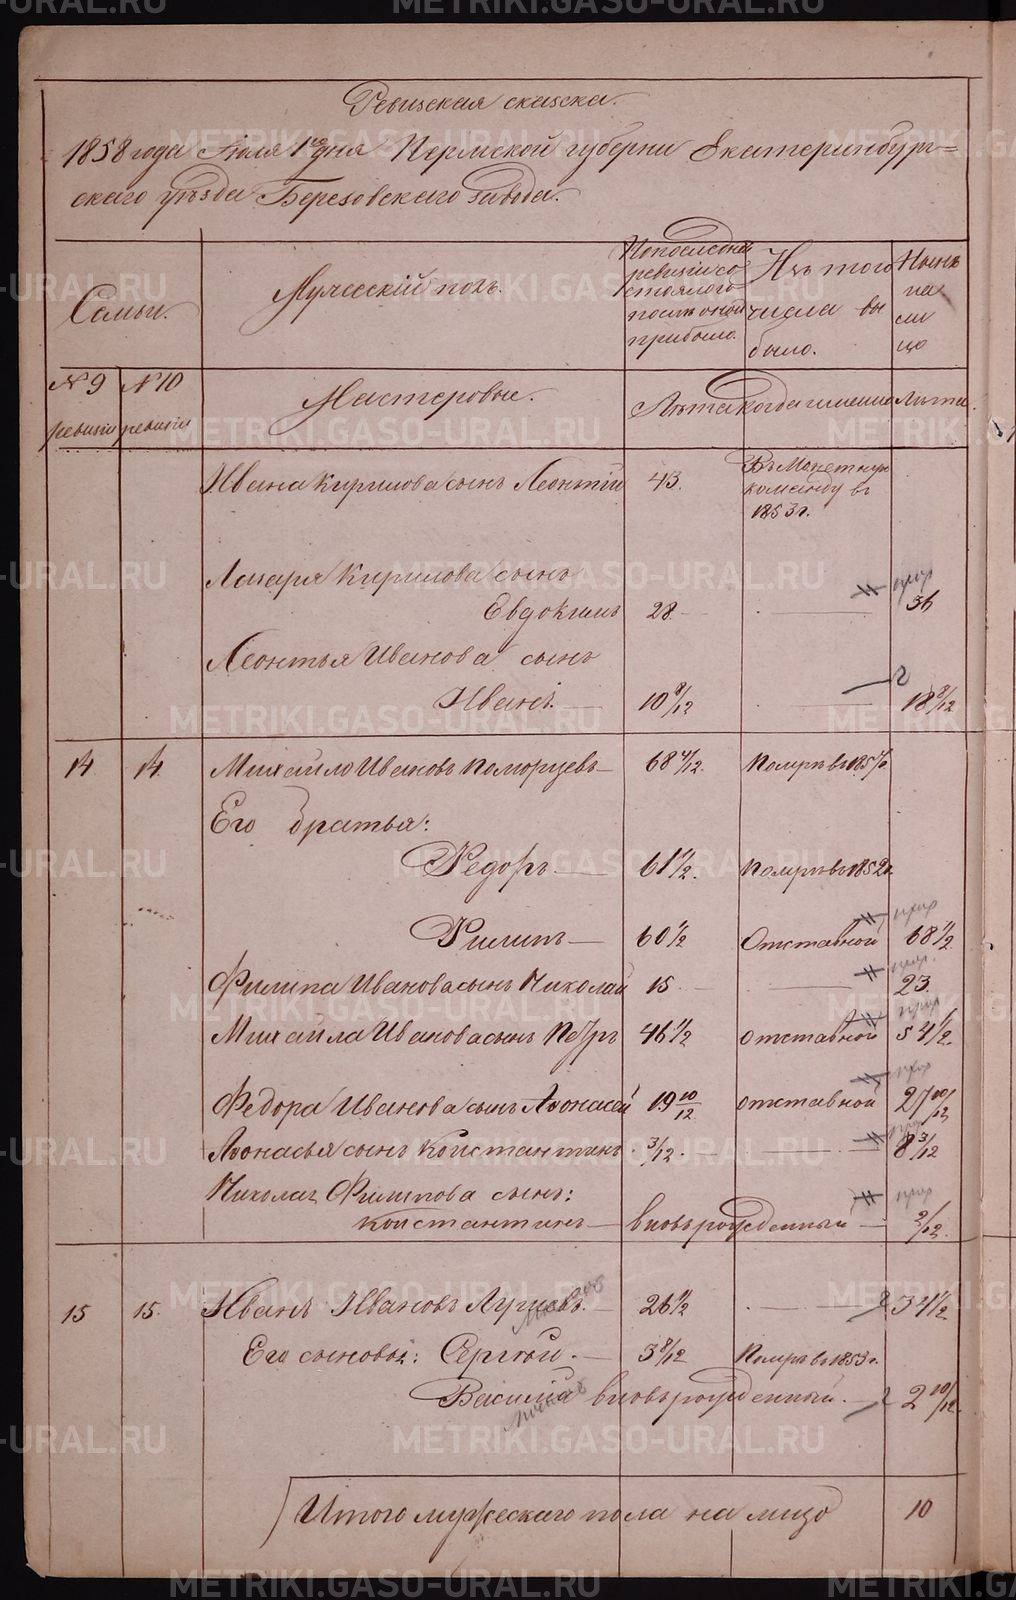 Ревизская сказка.
1858 года Июля 1го дня Пермской губернии Екатеринбург=
скаго уѣзда Березовскаго завода.
Семьи.
Мужескій полъ.
По последней ревизіи состояло и послѣ оной прибыло.
Изъ того числа выбыло.
Нынѣ на лицо
№ 9 ревизіи
№ 10 ревизіи
Мастеровые.
Лѣта
когда именно
Лѣта.
Ивана Кирилова сынъ Леонтій 43. Въ Монетную команду въ 1853 г.
Лазаря Кирилова сынъ
Евдокимъ 28. — 36
Леонтья Иванова сынъ
Иванъ. — 10 8/12 — 18 8/12
14 14. Михайло Ивановъ Поморцевъ — 68 4/12. Померъ въ 185
Его братья:
Федоръ — 61 1/2. Померъ въ 1852 г.
Филипъ — 60 1/2 Отставной 68 1/2
Филипа Иванова сынъ Николай 15 — 23.
Михайла Иванова сынъ Петръ 46 1/2 отставной 54 1/2.
Федора Иванова сынъ Афонасей 19 10/12 отставной 27 10/12
Афонасья сынъ Константинъ. 3/12. — 8 3/12
Николая Филипова сынъ:
Константинъ — вновь рожденный — 2/12.
15 15. Иванъ Ивановъ 26 1/2 — 34 1/2
Его сыновья: Сергѣй. — 3 8/12 Померъ въ 1853 г.
Василій вновь рожденный. — 2 10/12.
Итого мужескаго пола на лицо 10
METRIKI.GASO-URAL.RU